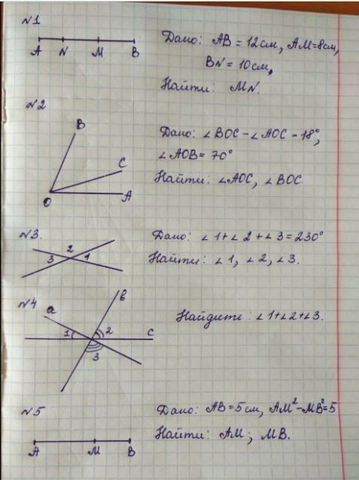 №1
A N M B
Дано: AB = 12см, AM=8см,
BN = 10см,
Найти: MN.
№2
B
C
O A
Дано: ∠BOC - ∠AOC = 18°,
∠AOB = 70°
Найти: ∠AOC, ∠BOC
№3.
3 2 1
Дано: ∠1 + ∠2 + ∠3 = 230°
Найти: ∠1, ∠2, ∠3.
№4
a b
1 2 c
3
Найдите: ∠1+∠2+∠3.
№5
A M B
Дано: AB = 5см, AM²-MB²=5
Найти: AM; MB.